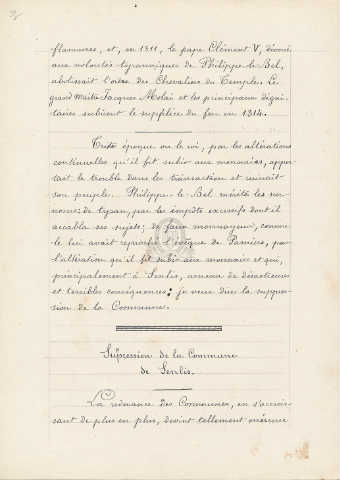 flammes, et, en 1311, le pape Clément V, dévoué
aux volontés tyranniques de Philippe-le-Bel,
abolissait l'ordre des Chevaliers du Temple. Le
grand Maître Jacques Molai et les principaux digni-
taires subirent le supplice du feu en 1314.
Triste époque où le roi, par les altérations
continuelles qu'il fit subir aux monnaies, appor-
tait le trouble dans les transactions et ruinait
son peuple. Philippe-le-Bel mérita les sur-
noms: de tyran, par les impôts excessifs dont il
accabla ses sujets; de faux monnayeur, comme
le lui avait reproché l'évêque de Pamiers, par
l'altération qu'il fit subir aux monnaies et qui,
principalement à Senlis, amena de désastreuses
et terribles conséquences; je veux dire la suppres-
sion de la Commune.
Supression de la Commune
de Senlis.
La redevance des Communes, en s'accrois-
sant de plus en plus, devint tellement onéreuse